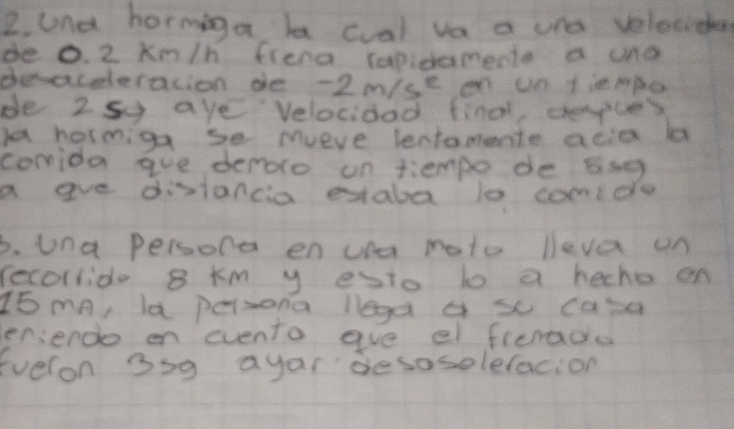 2. Una hormiga la cual va a una velocidad
de 0.2 Km/h frena rapidamente a una
desaceleracion de -2 m/s² en un tiempo
de 2 sg aye velocidad final,
la hormiga se mueve lentamente acia la
comida que demoro un tiempo de 5sg
a que distancia estaba la comida
3. Una persona en una moto lleva un
recorrido 8 Km y esto lo a hecho en
15 mn, la persona llega a su casa
teniendo en cuenta que el frenado
fueron 3sg ayar desaseleracion